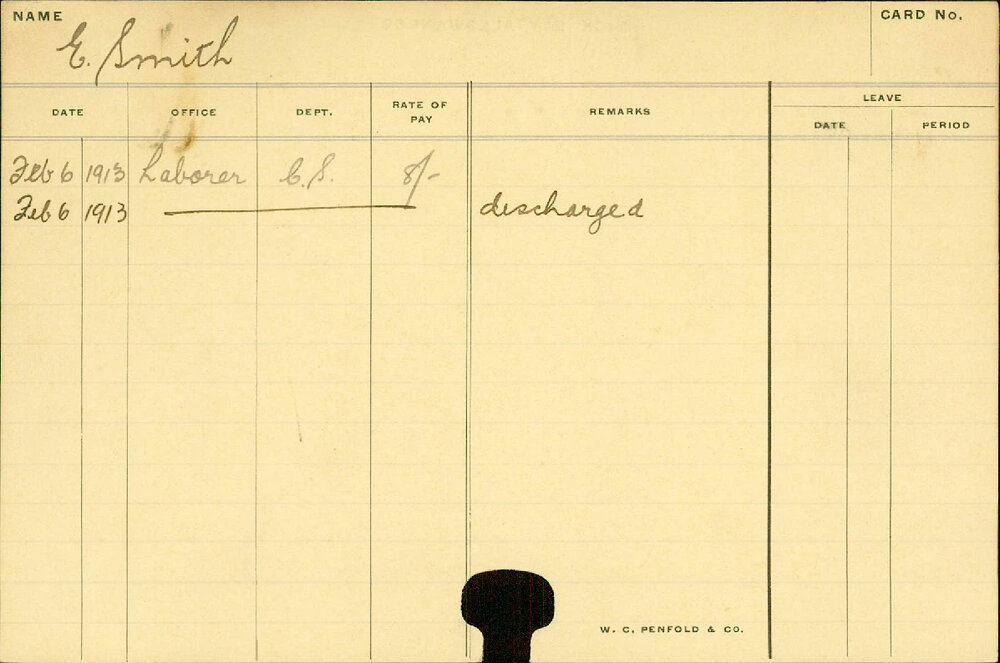 NAME
E. Smith
CARD No.
DATE OFFICE DEPT. RATE OF PAY REMARKS LEAVE
DATE PERIOD
Feb 6 1913 Laborer C.S. 8/-
Feb 6 1913 discharged
W. C. PENFOLD & CO.